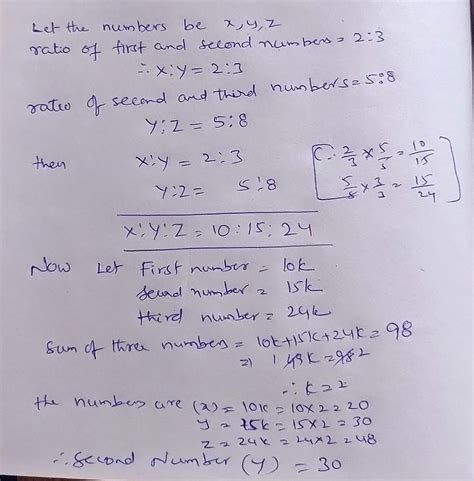 Let the numbers be x, y, z
ratio of first and second numbers = 2:3
∴ x:y = 2:3
ratio of second and third numbers = 5:8
y:z = 5:8
then x:y = 2:3
y:z = 5:8
[∵ 2/3 × 5/5 = 10/15
5/8 × 3/3 = 15/24]
x:y:z = 10:15:24
Now Let First number = 10k
second number = 15k
third number = 24k
Sum of three numbers = 10k+15k+24k = 98
⇒ 49k = 98 2
∴ k = 2
the numbers are (x) = 10k = 10×2 = 20
y = 15k = 15×2 = 30
z = 24k = 24×2 = 48
∴ Second Number (y) = 30